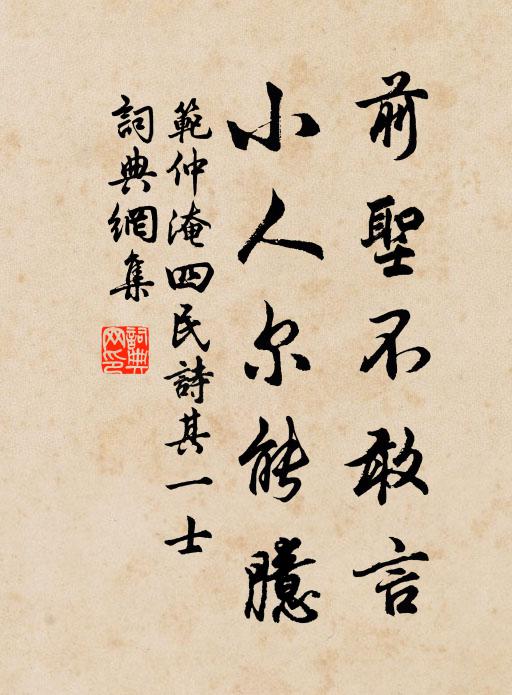 前聖不敢言
小人尔能臆
範仲淹四民詩其一士
詞典網集
詞典網印